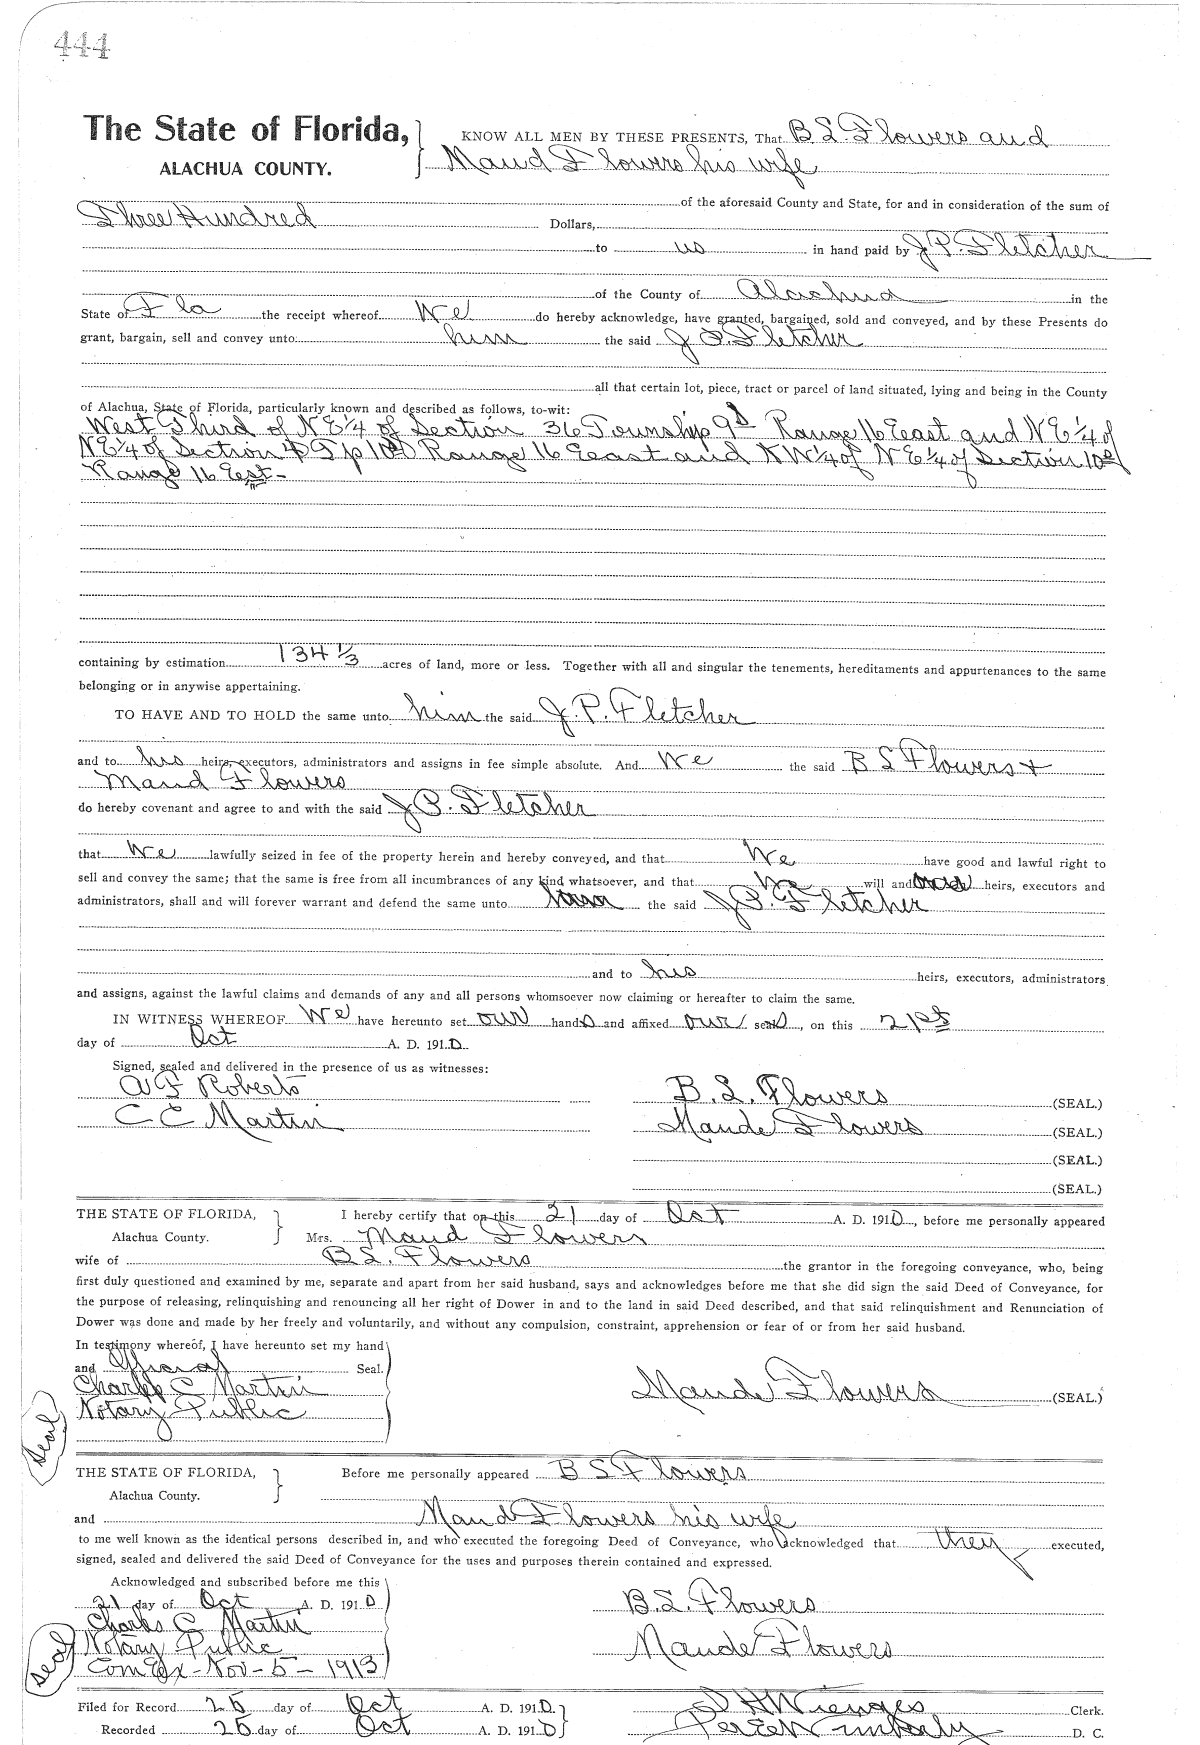 444
The State of Florida, } KNOW ALL MEN BY THESE PRESENTS, That B.S. Flowers and
ALACHUA COUNTY. Maud Flowers his wife
of the aforesaid County and State, for and in consideration of the sum of
Three Hundred Dollars,
to us in hand paid by J.P. Fletcher
of the County of Alachua in the
State of Fla the receipt whereof We do hereby acknowledge, have granted, bargained, sold and conveyed, and by these Presents do
grant, bargain, sell and convey unto him the said J P. Fletcher
all that certain lot, piece, tract or parcel of land situated, lying and being in the County
of Alachua, State of Florida, particularly known and described as follows, to-wit:
West Third of NE 1/4 of Section 36 Township 9 S Range 16 East and NE 1/4 of
NE 1/4 of Section Tp 10 S Range 16 East and NW 1/4 of NE 1/4 of Section 10 S
Range 16 East -
containing by estimation 134 1/3 acres of land, more or less. Together with all and singular the tenements, hereditaments and appurtenances to the same
belonging or in anywise appertaining.
TO HAVE AND TO HOLD the same unto him the said J. P. Fletcher
and to his heirs, executors, administrators and assigns in fee simple absolute. And We the said B S Flowers +
Maud Flowers
do hereby covenant and agree to and with the said J P. Fletcher
that We lawfully seized in fee of the property herein and hereby conveyed, and that We have good and lawful right to
sell and convey the same; that the same is free from all incumbrances of any kind whatsoever, and that We will and heirs, executors and
administrators, shall and will forever warrant and defend the same unto him the said J P. Fletcher
and to his heirs, executors, administrators
and assigns, against the lawful claims and demands of any and all persons whomsoever now claiming or hereafter to claim the same.
IN WITNESS WHEREOF We have hereunto set our hands and affixed our seals, on this 21st
day of Oct A. D. 1910.
Signed, sealed and delivered in the presence of us as witnesses:
A F Roberts B. S. Flowers (SEAL.)
C C Martin Maude Flowers (SEAL.)
(SEAL.)
(SEAL.)
THE STATE OF FLORIDA, } I hereby certify that on this 21 day of Oct A. D. 1910, before me personally appeared
Alachua County. Mrs. Maud Flowers
wife of B S. Flowers the grantor in the foregoing conveyance, who, being
first duly questioned and examined by me, separate and apart from her said husband, says and acknowledges before me that she did sign the said Deed of Conveyance, for
the purpose of releasing, relinquishing and renouncing all her right of Dower in and to the land in said Deed described, and that said relinquishment and Renunciation of
Dower was done and made by her freely and voluntarily, and without any compulsion, constraint, apprehension or fear of or from her said husband.
In testimony whereof, I have hereunto set my hand
and Official Seal.
Charles C Martin Maude Flowers (SEAL.)
Notary Public
Seal
THE STATE OF FLORIDA, } Before me personally appeared B S Flowers
Alachua County.
and Maud Flowers his wife
to me well known as the identical persons described in, and who executed the foregoing Deed of Conveyance, who acknowledged that they executed,
signed, sealed and delivered the said Deed of Conveyance for the uses and purposes therein contained and expressed.
Acknowledged and subscribed before me this
21 day of Oct A. D. 1910 B.S. Flowers
Charles C Martin
Notary Public Maude Flowers
Seal
Com Ex - Nov - 5 - 1913
Filed for Record 25 day of Oct A. D. 1910. } S H Wienges Clerk.
Recorded 26 day of Oct A. D. 1910 Wimberly D. C.